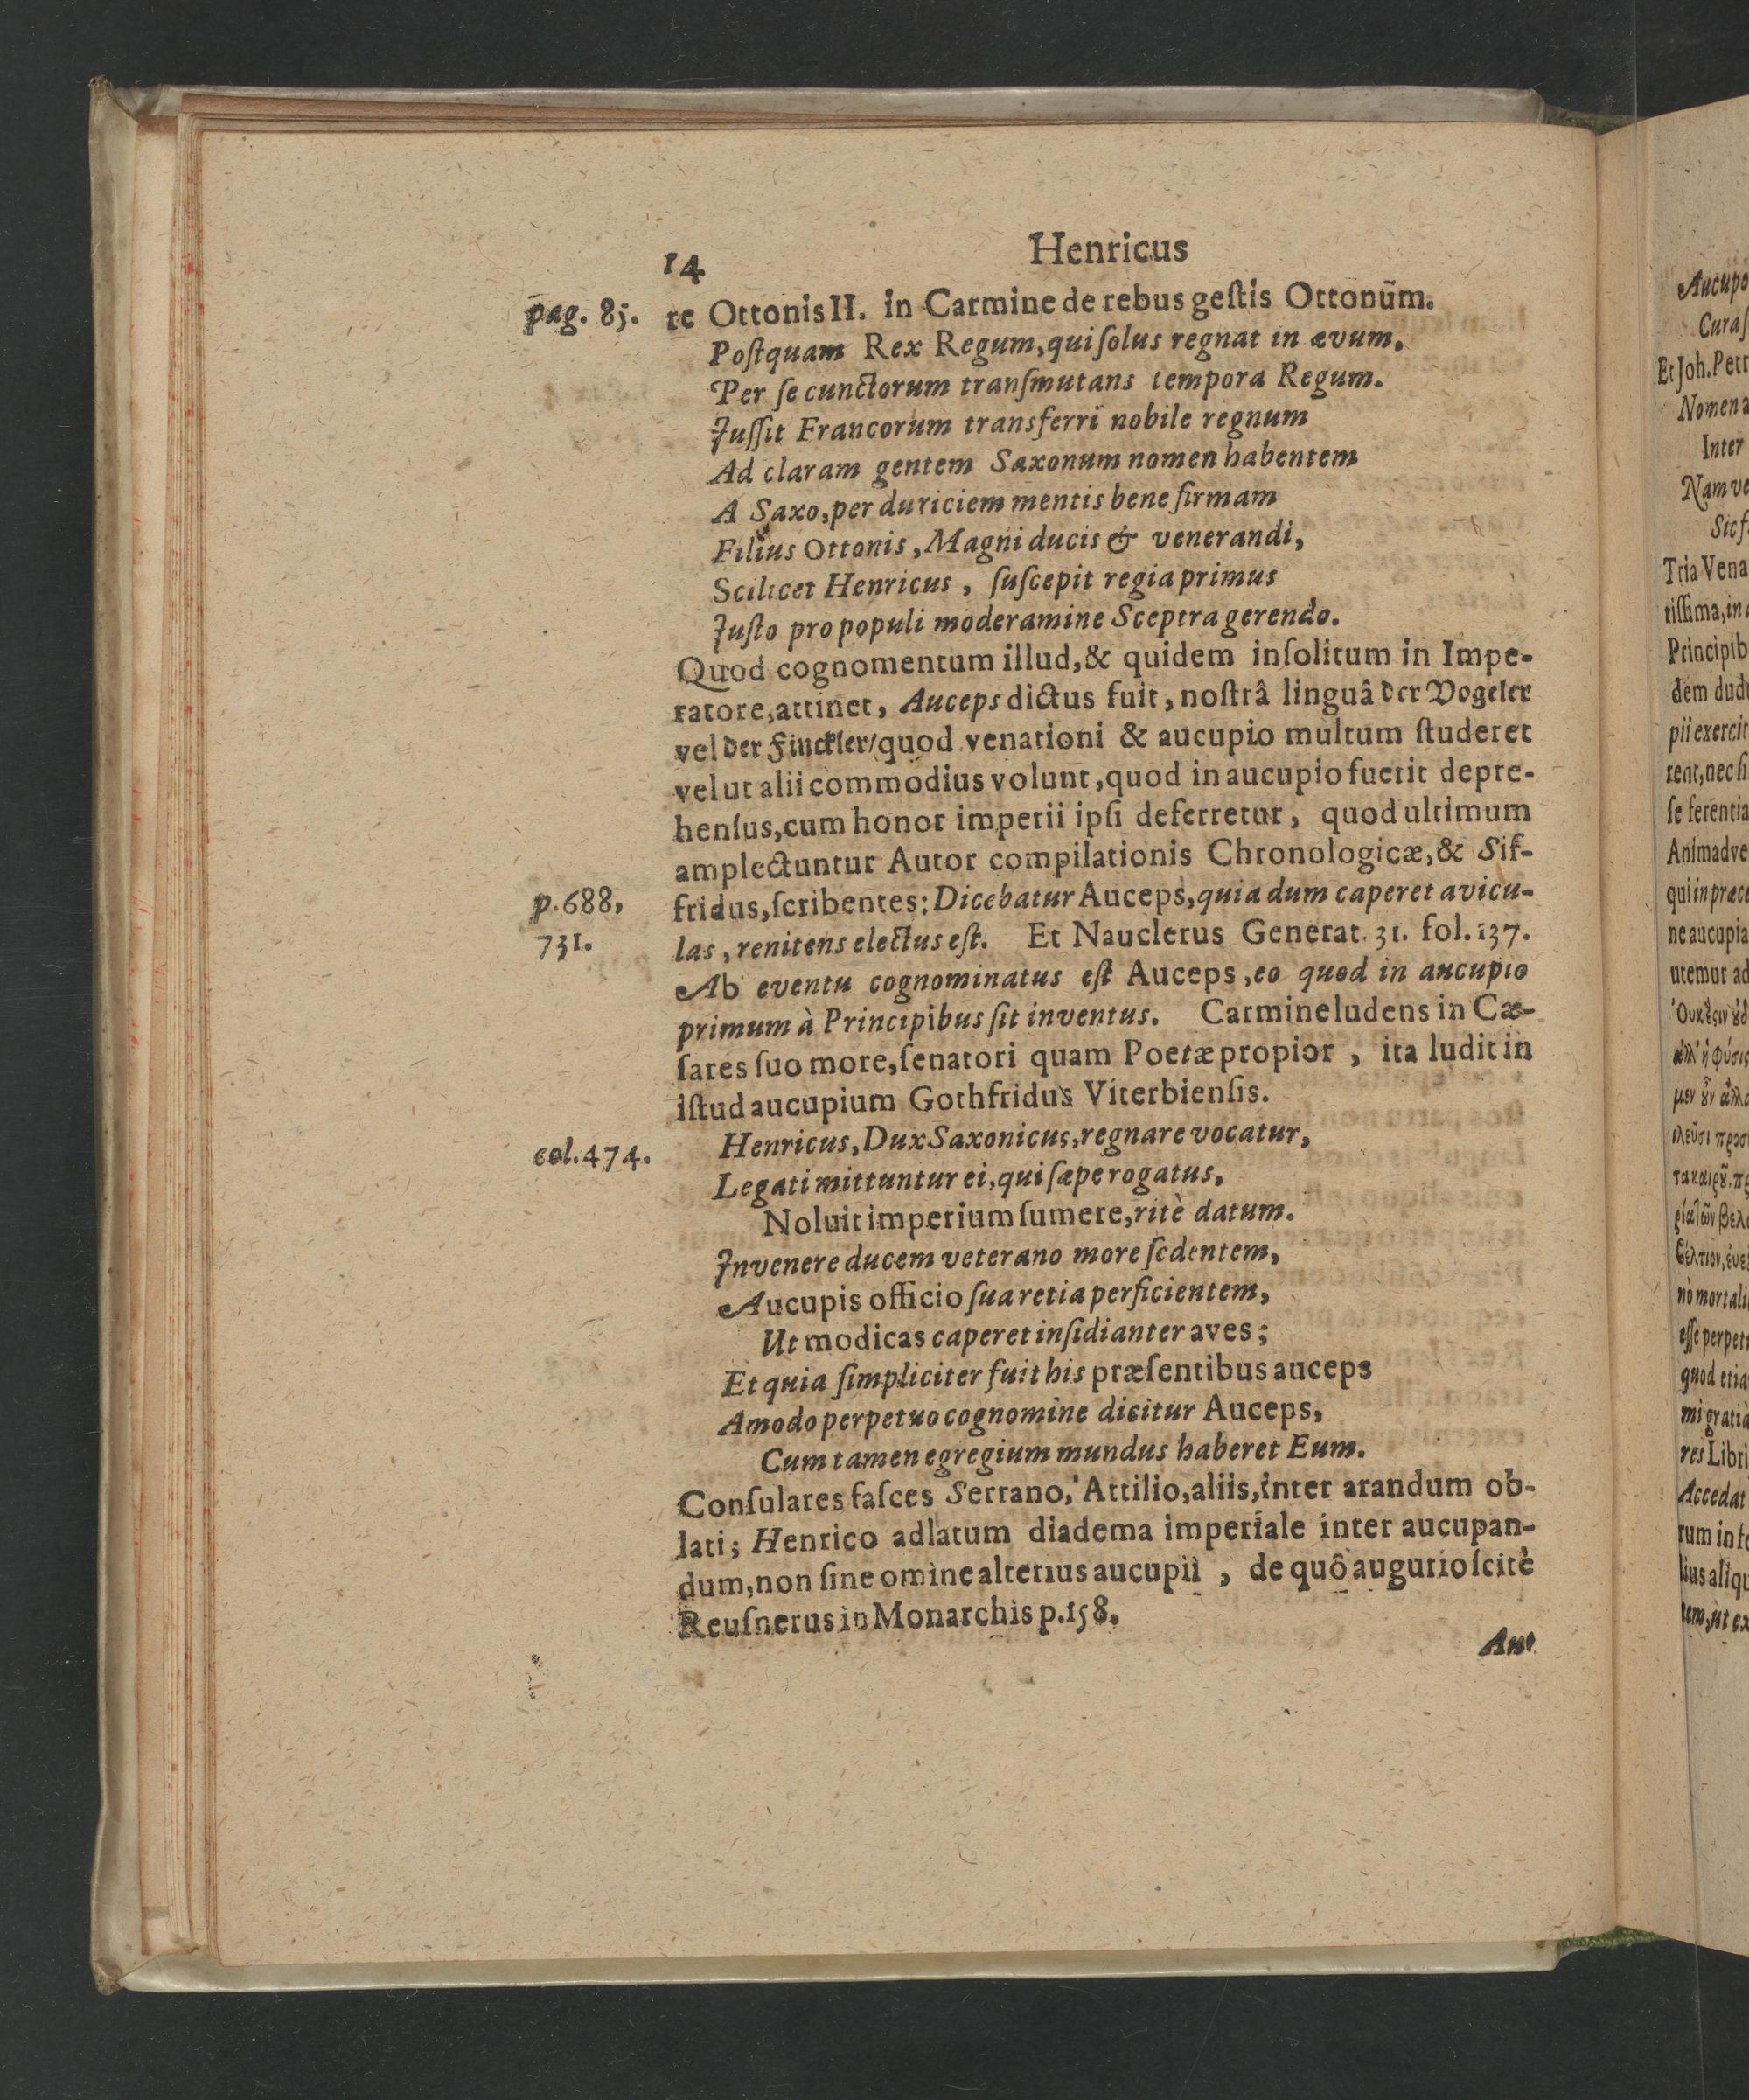 14 Henricus
pag. 85. re Ottonis II. in Carmine de rebus geſtis Ottonũm.
Poſtquam Rex Regum, qui ſolus regnat in ævum.
Per ſe cunctorum tranſmutans tempora Regum.
Juſſit Francorum transferri nobile regnum
Ad claram gentem Saxonum nomen habentem
A Saxo, per duriciem mentis bene firmam
Filius Ottonis, Magni ducis & venerandi,
Scilicet Henricus, ſuſcepit regia primus
Juſto pro populi moderamine Sceptra gerendo.
Quod cognomentum illud, & quidem inſolitum in Impe-
ratore, attinet, Auceps dictus fuit, noſtrâ linguâ der Vogeler
vel der Finckler/ quod venationi & aucupio multum ſtuderet
vel ut alii commodius volunt, quod in aucupio fuerit depre-
henſus, cum honor imperii ipſi deferretur, quod ultimum
amplectuntur Autor compilationis Chronologicæ, & Sif-
p. 688, fridus, ſcribentes: Dicebatur Auceps, quia dum caperet avicu-
731. las, renitens electus eſt. Et Nauclerus Generat. 31. fol. 137.
Ab eventu cognominatus eſt Auceps, eo quod in aucupio
primum à Principibus ſit inventus. Carmine ludens in Cæ-
ſares ſuo more, ſenatori quam Poetæ propior, ita ludit in
iſtud aucupium Gothfridus Viterbienſis.
col. 474. Henricus, Dux Saxonicus, regnare vocatur,
Legati mittuntur ei, qui ſæpe rogatus,
Noluit imperium ſumere, ritè datum.
Invenere ducem veterano more ſedentem,
Aucupis officio ſua retia perficientem,
Ut modicas caperet inſidianter aves;
Et quia ſimpliciter fuit his præſentibus auceps
Amodo perpetuo cognomine dicitur Auceps,
Cum tamen egregium mundus haberet Eum.
Conſulares faſces Serrano, Attilio, aliis, inter arandum ob-
lati; Henrico adlatum diadema imperiale inter aucupan-
dum, non ſine omine alterius aucupii, de quô augurio ſcitè
Reuſnerus in Monarchis p. 158.
Au-
Aucupo
Et Joh. Petr
Inter
Nam ve
Tria Vena
riſſima, in
Principib
dem dudu
pii exercit
rent, nec ſi
ſe ferentia
Animadve
qui in præce
ne aucupia
utemur ad
nò mortali
eſſe perpet
quod etia
mi gratiâ
res Libri
Accedat
rum in ſe
lius aliqu
tem, ut ex